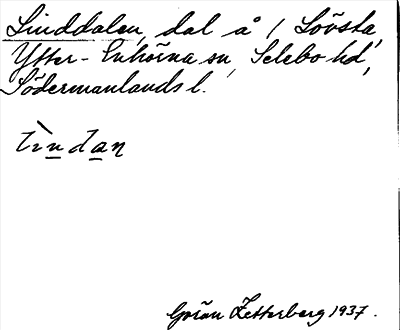 Linddalen, dal å / Lövsta,
Ytter-Enhörna sn, Selebo hd,
Södermanlands l.
lìndan
Göran Zetterberg 1937.